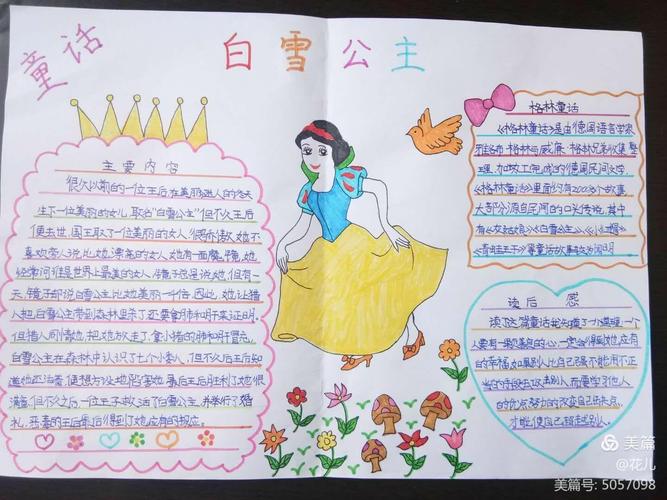 童话
白雪公主
主要内容
很久以前的一位王后在美丽迷人的冬天
生下一位美丽的女儿,取名"白雪公主"但不久王后
便去世,国王取了一位美丽的女人很骄傲,她不
喜欢旁人说比她漂亮的女人她有面魔镜,她
经常问谁是世界上最美的女人,镜子总是说她,但有一
天,镜子却说白雪公主比她美丽一千倍。因此,她让猎
人把白雪公主带到森林里杀了还要拿肺和肝来证明。
但猎人同情她,把她放走了,拿小猪的肺和肝冒充。
白雪公主在森林中认识了七个小矮人,但不久后王后知
道她还活着,便想方设法地陷害她,最后王后胜利了她很
满意,但不久之后,一位王子救活了白雪公主,并举行了婚
礼,恶毒的王后最后得到了她应有的报应。
格林童话
《格林童话》是由德国语言学家
雅各布·格林与威廉·格林兄弟收集、整
理、加工完成的德国民间文学。
《格林童话》里面约有200多个故事,
大部分源自民间的口头传说,其中
有《灰姑娘》《白雪公主》《小红帽》
《青蛙王子》等童话故事
读后感
读了这篇童话我知道了一个道理,一个
人要有一颗善良的心,一定会得到她应有
的幸福,如果别人比自己强不能用不正
当的手段去攻击别人,而要学习他人
的优点,努力的改变自己的不足,
才能使自己超越别人。
美篇
@花儿
美篇号: 5057098